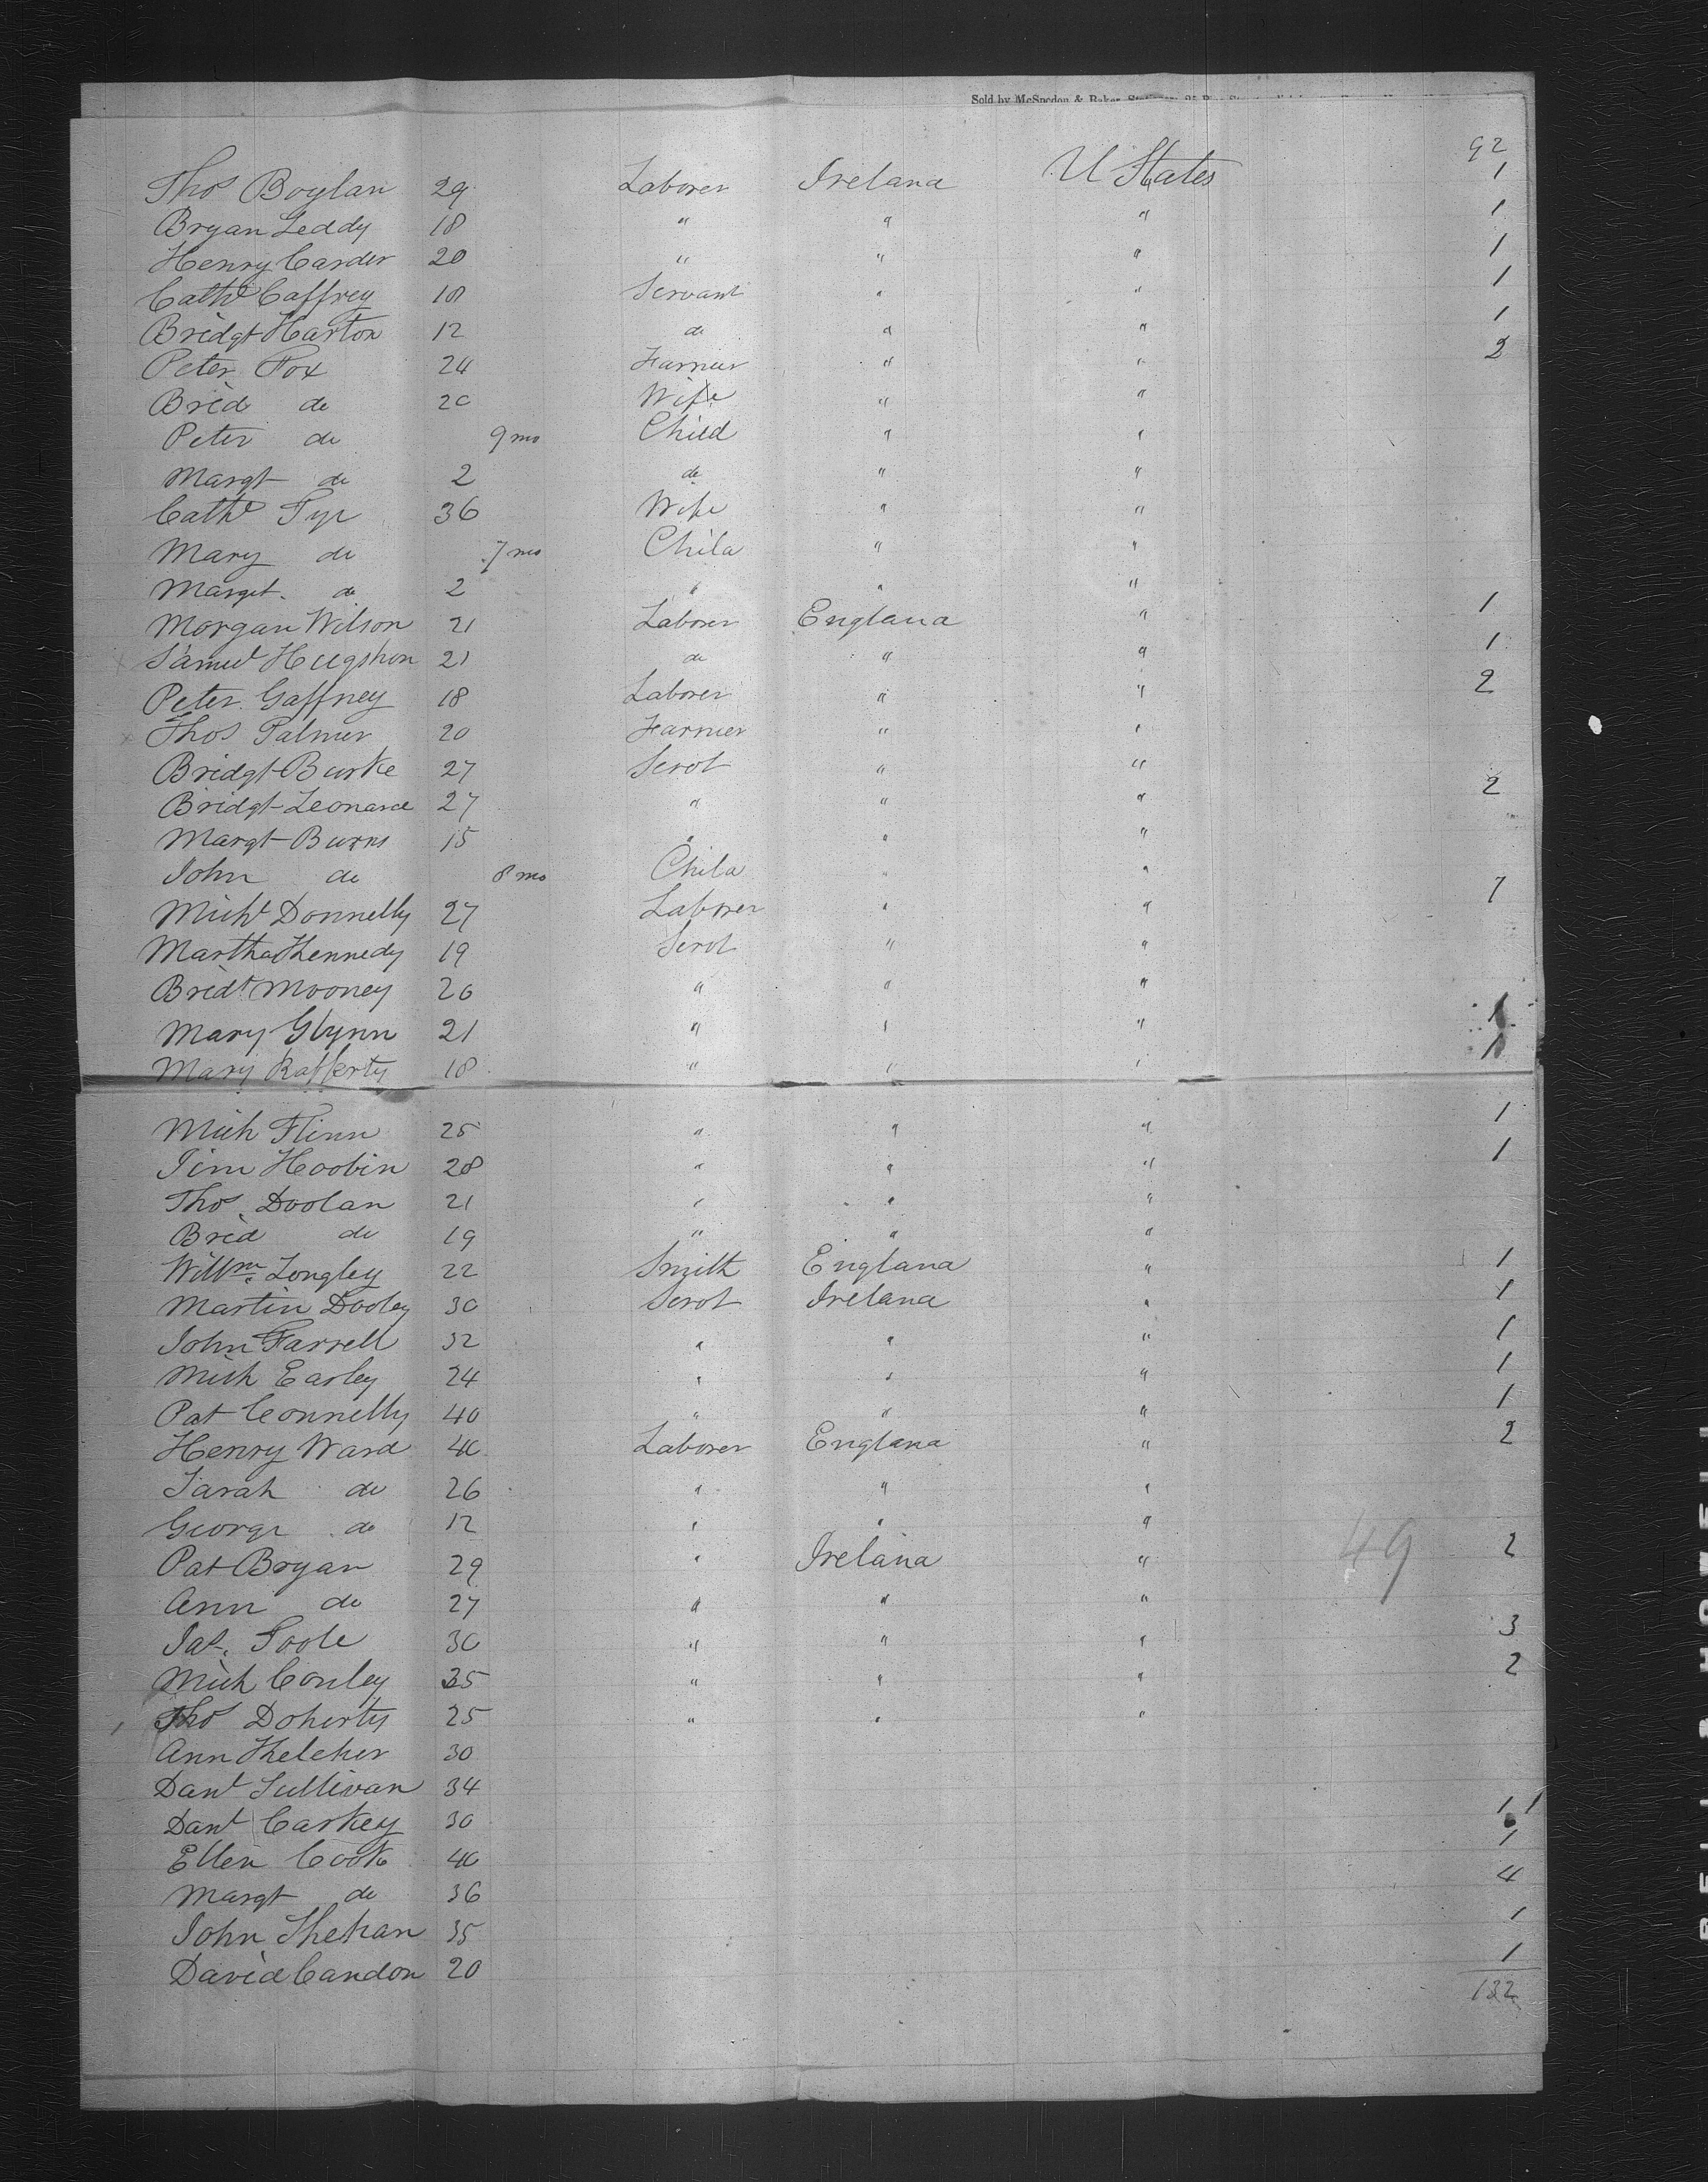 Sold by McSpedon & Baker, Stationers, 25 Pine Street
92
Thos Boylan 29 Laborer Ireland U States 1
Bryan Leddy 18 " " " 1
Henry Carder 20 " " " 1
Cathe Caffrey 18 Servant " " 1
Bridgt Harton 12 do " " 1
Peter Fox 24 Farmer " " 2
Brid do 20 Wife " "
Peter do 9 mo Child " "
Margt do 2 do " "
Cathe Pyr 36 Wife " "
Mary do 7 mo Child " "
Margt. do 2 " " "
Morgan Wilson 21 Laborer England " 1
Samul Hugshon 21 do " " 1
Peter Gaffney 18 Laborer " " 2
Thos Palmer 20 Farmer " "
Bridgt Burke 27 Servt " "
Bridgt Leonard 27 " " " 2
Margt Burns 15 " " "
John do 8 mo Child " "
Michl Donnelly 27 Laborer " " 1
Martha Kennedy 19 Servt " "
Bridt Mooney 26 " " "
Mary Glynn 21 " " " 1
Mary Rafferty 18 " " " 1
Mich Flinn 25 " " " 1
Jim Hoobin 28 " " " 1
Thos Doolan 21 " " "
Brid do 19 " " "
Willm Longley 22 Smith England " 1
Martin Dooley 30 Servt Ireland " 1
John Farrell 32 " " " 1
Mich Earley 24 " " " 1
Pat Connelly 40 " " " 1
Henry Ward 40 Laborer England " 2
Sarah do 26 " " "
George do 12 " " "
Pat Bryan 29 " Ireland " 49 2
Ann do 27 " " "
Jas. Toole 30 " " " 3
Mich Conley 35 " " " 2
Thos Doherty 25 " " "
Ann Kelcher 30
Danl Sullivan 34
Danl Carkey 30 1 1
Ellen Cook 40 1
Margt do 36 4
John Shehan 35 1
David Candon 20 1
132